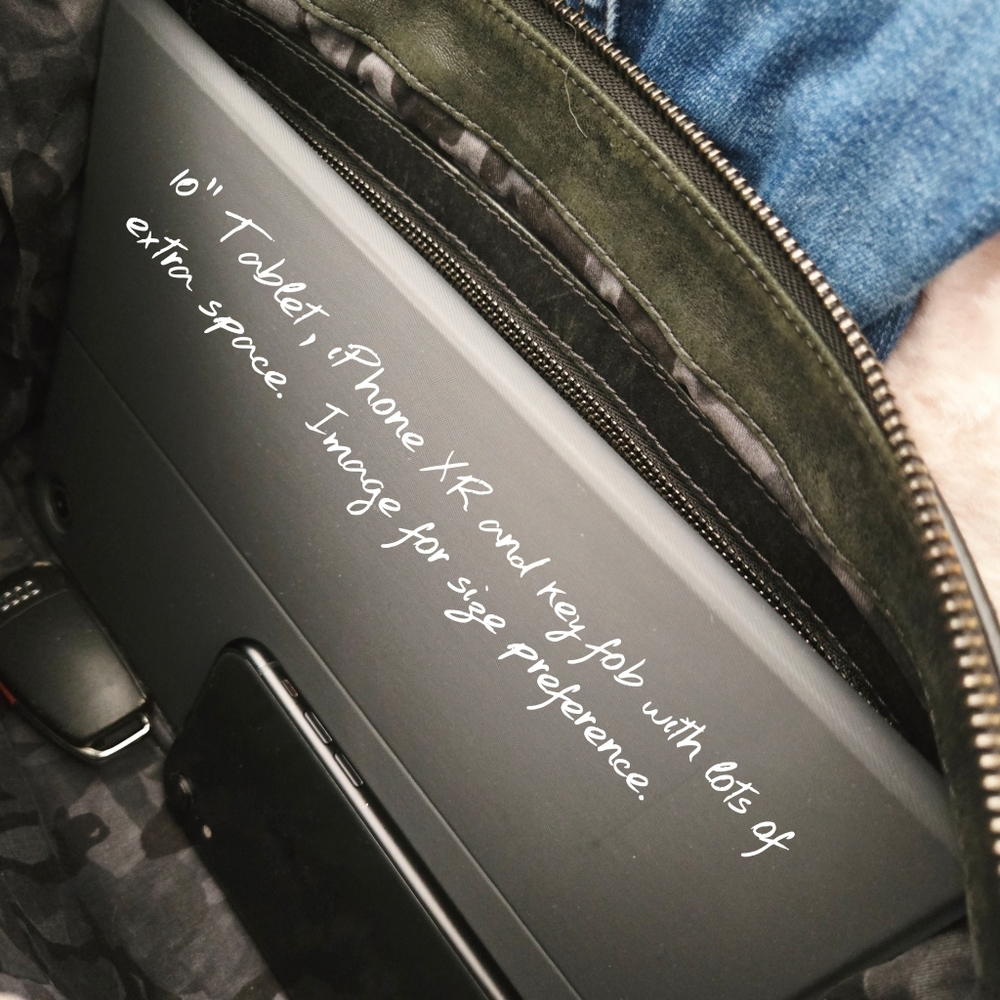 10" Tablet, iPhone XR and key fob with lots of
extra space. Image for size preference.